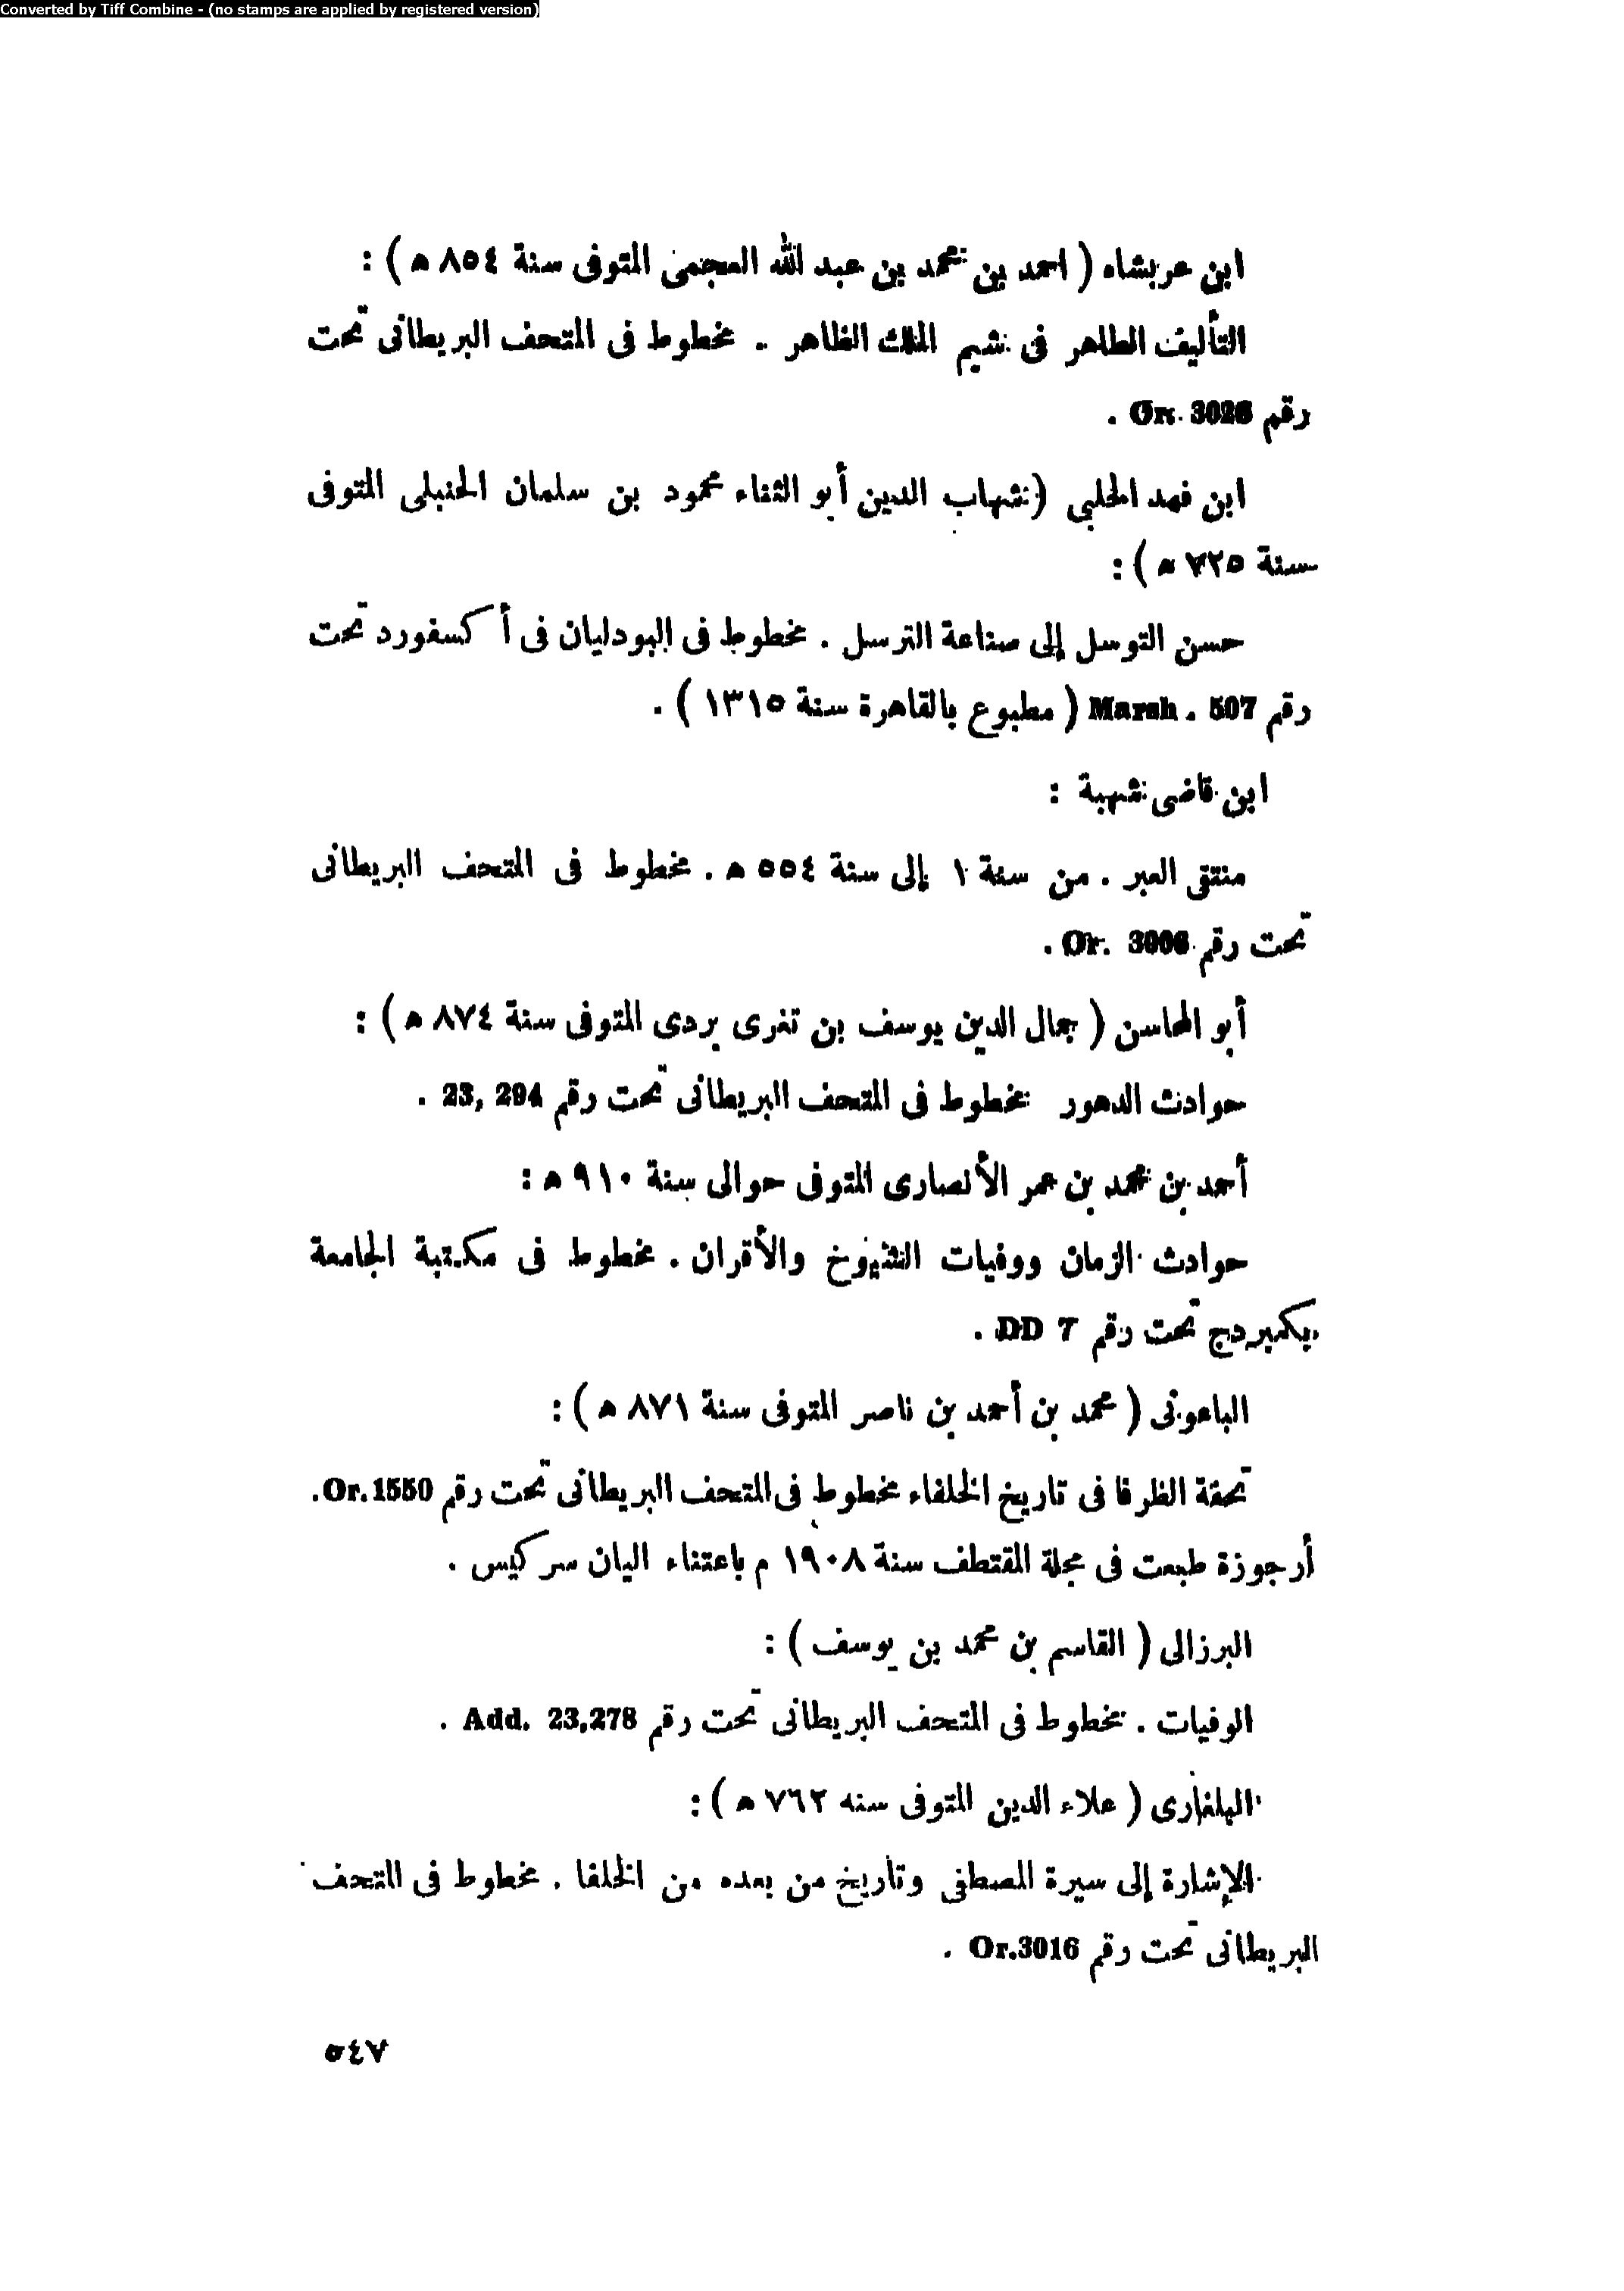 Converted by Tiff Combine - (no stamps are applied by registered version)
ابن عربشاه ( احمد بن محمد بن عبد الله العجمى المتوفى سنة ٨٥٤ ه ) :
التأليف الطاهر فى شيم الملك الظاهر .. مخطوط فى المتحف البريطانى تحت
رقم Or. 3026 .
ابن فهد الحلبى ( شهاب الدين أبو الثناء محمود بن سلمان الحنبلى المتوفى
سنة ٧٢٥ ه ) :
حسن التوسل إلى صناعة الترسل . مخطوط فى البودليان فى أكسفورد تحت
رقم Marsh . 507 ( مطبوع بالقاهرة سنة ١٣١٥ ) .
ابن قاضى شهبة :
منتقى العبر . من سنة ١ إلى سنة ٥٥٤ ه . مخطوط فى المتحف البريطانى
تحت رقم Or. 3006 .
أبو المحاسن ( جمال الدين يوسف بن تغرى بردى المتوفى سنة ٨٧٤ ه ) :
حوادث الدهور مخطوط فى المتحف البريطانى تحت رقم 23, 294 .
أحمد بن محمد بن عمر الأنصارى المتوفى حوالى سنة ٩١٠ ه :
حوادث الزمان ووفيات الشيوخ والأقران . مخطوط فى مكتبة الجامعة
بكمبردج تحت رقم DD 7 .
الباعونى ( محمد بن أحمد بن ناصر المتوفى سنة ٨٧١ ه ) :
تحفة الظرفا فى تاريخ الخلفاء مخطوط فى المتحف البريطانى تحت رقم Or.1550.
أرجوزة طبعت فى مجلة المقتطف سنة ١٩٠٨ م باعتناء اليان سركيس .
البرزالى ( القاسم بن محمد بن يوسف ) :
الوفيات . مخطوط فى المتحف البريطانى تحت رقم Add. 23,278 .
البلغارى ( علاء الدين المتوفى سنه ٧٦٢ ه ) :
الإشارة إلى سيرة المصطفى وتاريخ من بعده من الخلفا . مخطوط فى المتحف
البريطانى تحت رقم Or.3016 .
٥٤٧